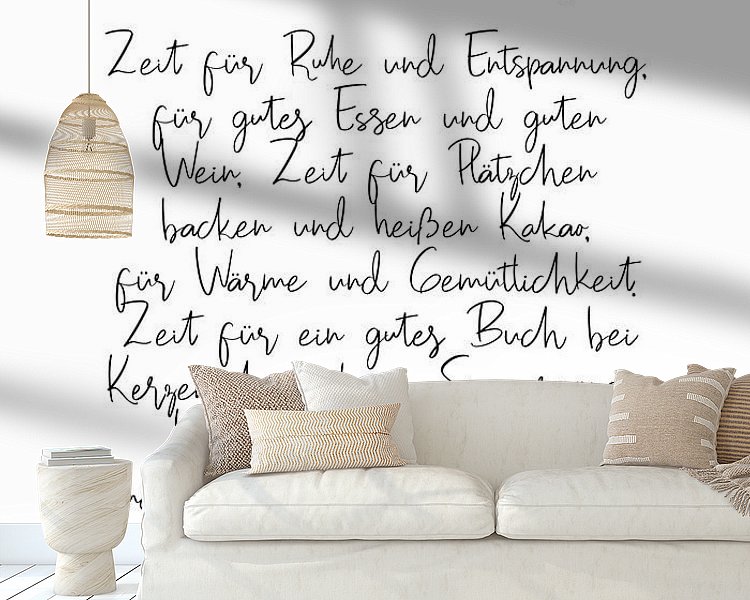 Zeit für Ruhe und Entspannung,
für gutes Essen und guten
Wein, Zeit für Plätzchen
backen und heißen Kakao,
für Wärme und Gemütlichkeit,
Zeit für ein gutes Buch bei